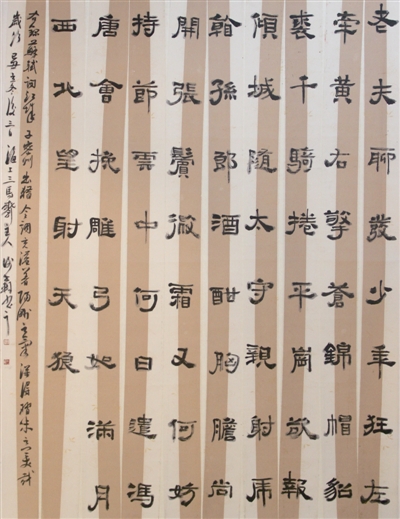 老夫聊發少年狂左
牽黃右擎蒼錦帽貂
裘千騎捲平崗欲報
傾城隨太守親射虎
看孫郎酒酣胸膽尚
開張鬢微霜又何妨
持節雲中何日遣馮
唐會挽雕弓如滿月
西北望射天狼
蘇軾詞江城子密州出獵
三馬齋主人